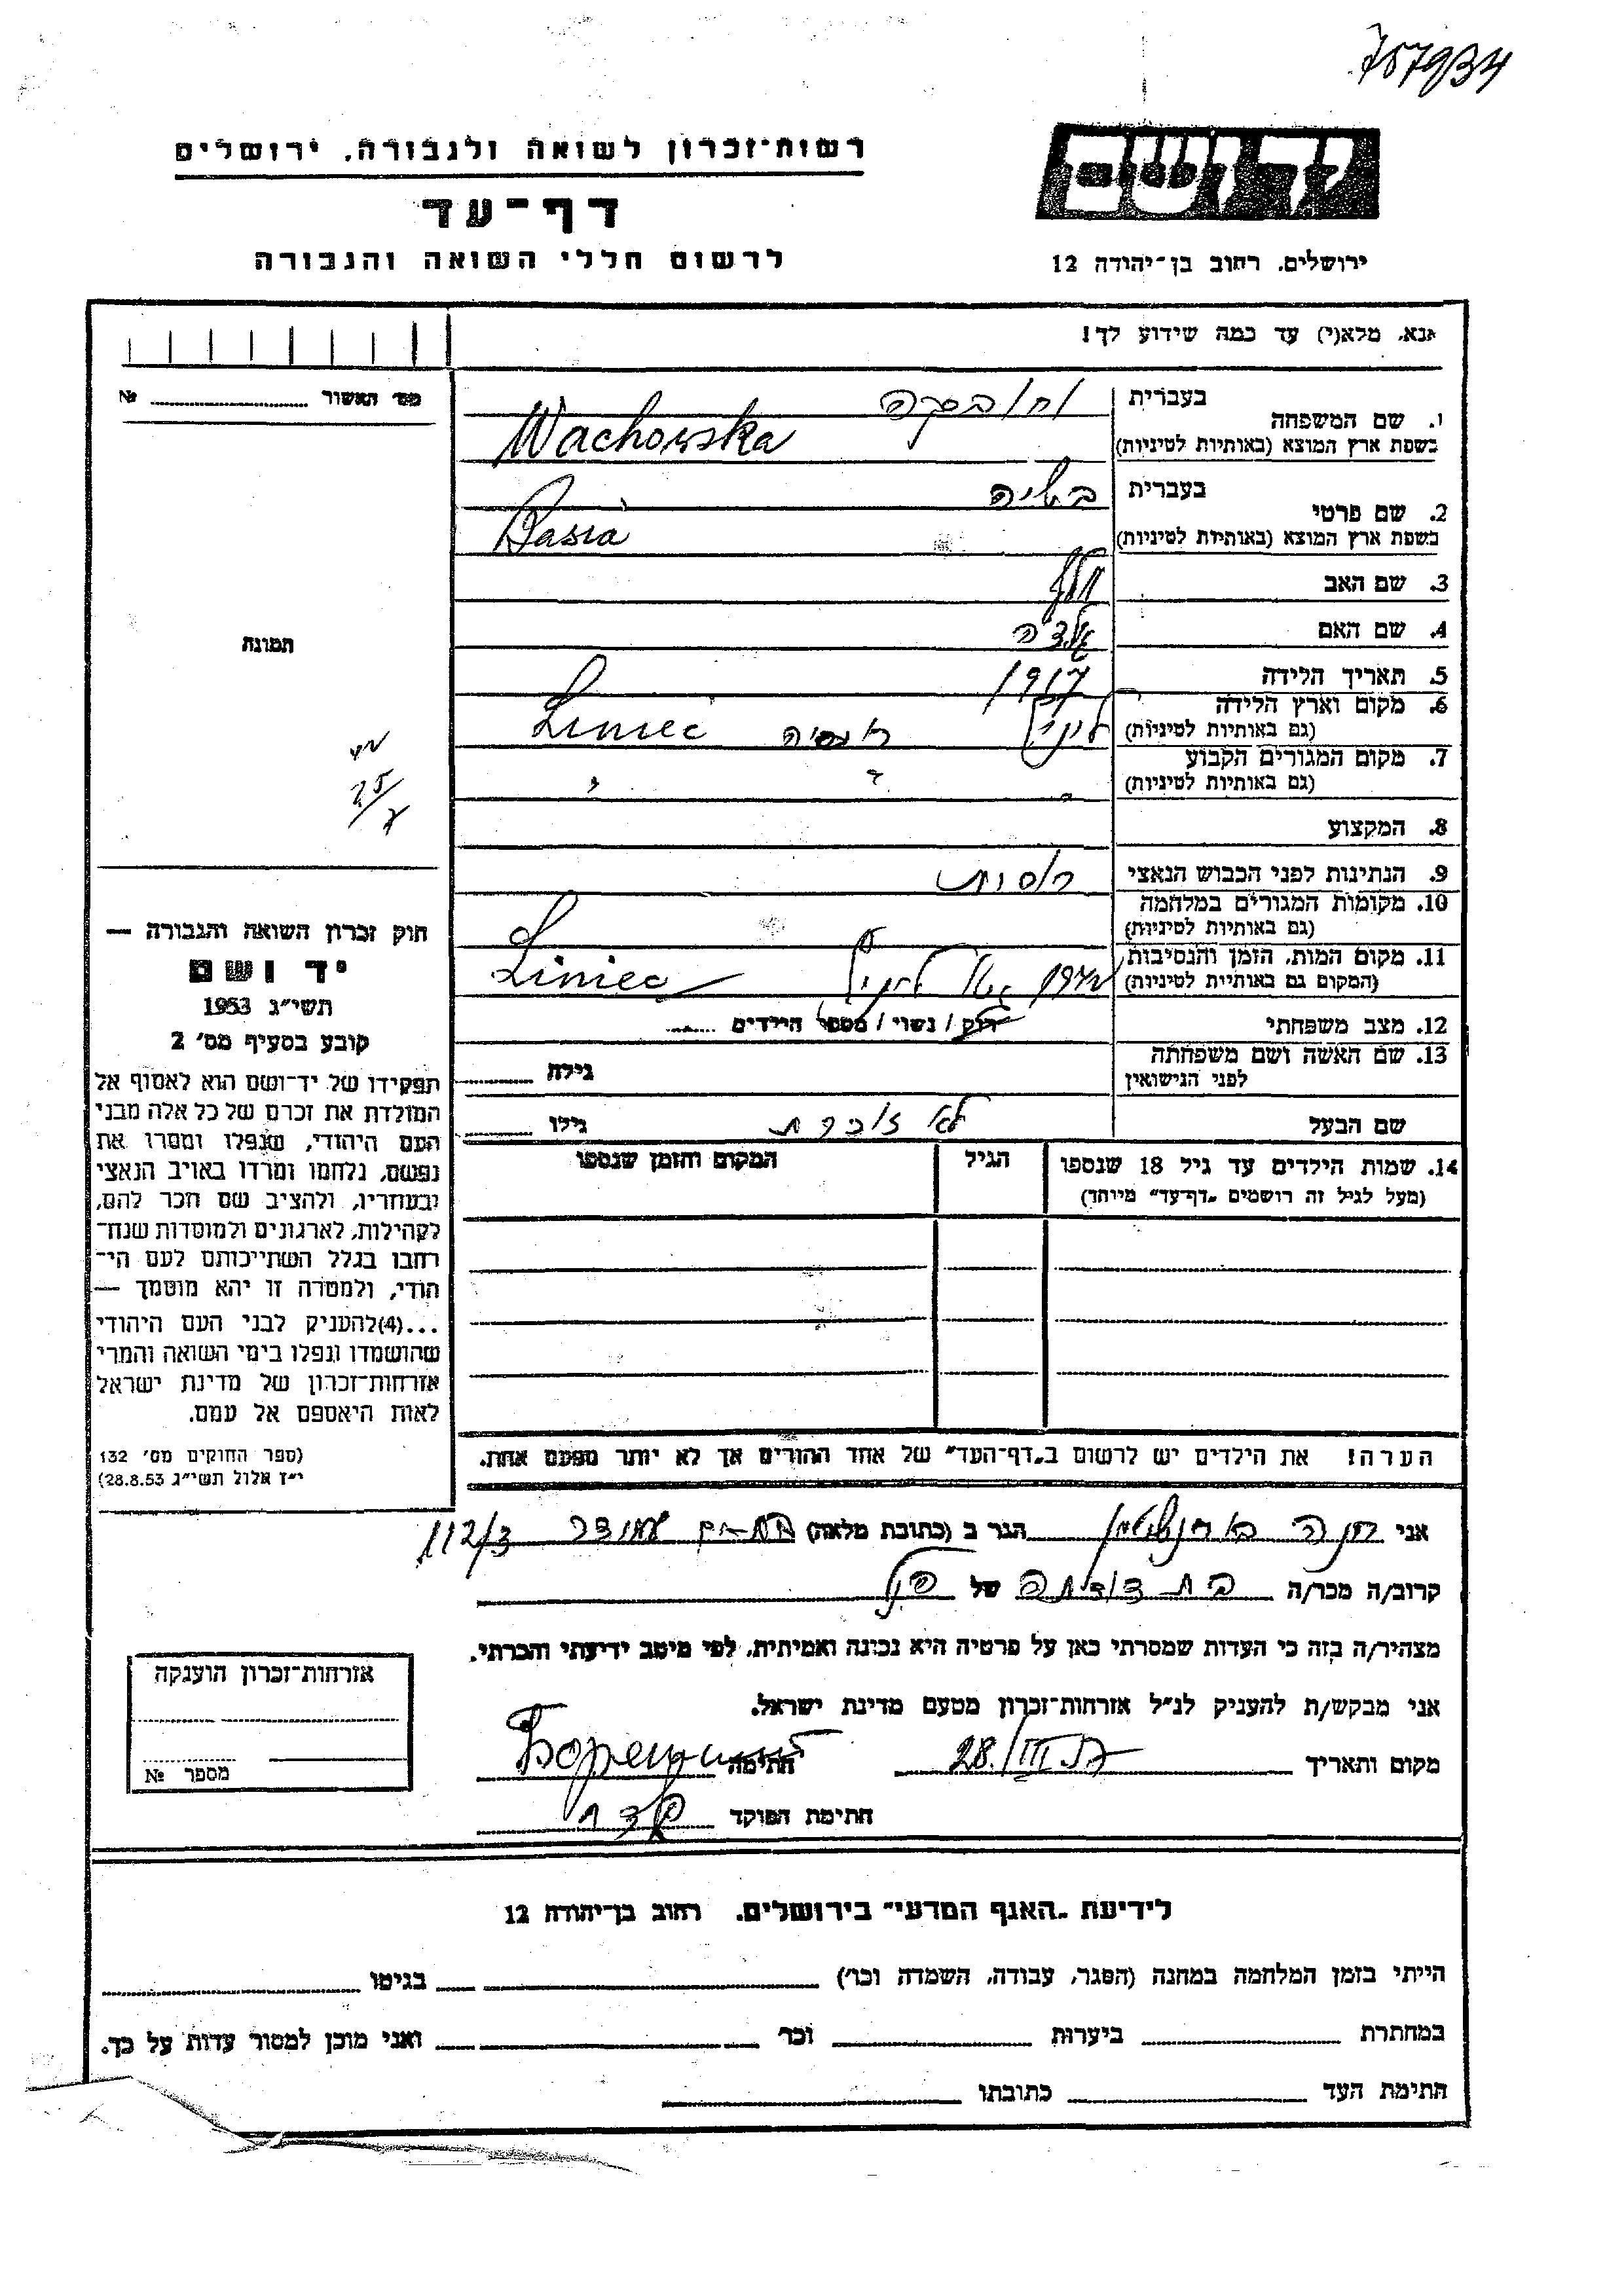 757934
רשות־זכרון לשואה ולגבורה, ירושלים
דף־עד
לרשום חללי השואה והגבורה
יד ושם
ירושלים, רחוב בן־יהודה 12
אנא, מלא(י) עד כמה שידוע לך!
מס׳ האשור № 
1. שם המשפחה
בעברית
בשפת ארץ המוצא (באותיות לטיניות)
Wachowska
2. שם פרטי
בעברית בטיה
בשפת ארץ המוצא (באותיות לטיניות)
Basia
3. שם האב
4. שם האם
5. תאריך הלידה 1917
6. מקום וארץ הלידה
(גם באותיות לטיניות) ליניץ רוסיה Liniec
7. מקום המגורים הקבוע
(גם באותיות לטיניות) " " "
8. המקצוע
9. הנתינות לפני הכבוש הנאצי רוסית
10. מקומות המגורים במלחמה
(גם באותיות לטיניות)
11. מקום המות, הזמן והנסיבות
(המקום גם באותיית לטיניות) Liniec
12. מצב משפחתי רוק / נשוי / מספר הילדים
13. שם האשה ושם משפחתה
לפני הנישואין גילה
שם הבעל לא זוכרת גילו
14. שמות הילדים עד גיל 18 שנספו
(מעל לגיל זה רושמים „דף־עד״ מיוחד)
הגיל
המקום והזמן שנספו
הערה! את הילדים יש לרשום ב„דף־העד״ של אחד ההורים אך לא יותר מפעם אחת.
תמונה
חוק זכרון השואה והגבורה —
יד ושם
תשי״ג 1953
קובע בסעיף מס׳ 2
תפקידו של יד־ושם הוא לאסוף אל
המולדת את זכרם של כל אלה מבני
העם היהודי, שנפלו ומסרו את
נפשם, נלחמו ומרדו באויב הנאצי
ובעוזריו, ולהציב שם וזכר להם,
לקהילות, לארגונים ולמוסדות שנח־
רבו בגלל השתייכותם לעם הי־
הודי, ולמטרה זו יהא מוסמך —
...(4)להעניק לבני העם היהודי
שהושמדו ונפלו בימי השואה והמרי
אזרחות־זכרון של מדינת ישראל
לאות היאספם אל עמם.
(ספר החוקים מס׳ 132
י״ז אלול תשי״ג 28.8.53)
אני חנה הגר ב (כתובת מלאה) 112/3
קרוב/ה מכר/ה בת דודתה של הנ״ל
מצהיר/ה בזה כי העדות שמסרתי כאן על פרטיה היא נכונה ואמיתית, לפי מיטב ידיעתי והכרתי.
אני מבקש/ת להעניק לנ״ל אזרחות־זכרון מטעם מדינת ישראל.
מקום ותאריך 28./III חתימה
חתימת הפוקד
אזרחות־זכרון הוענקה
מספר №
לידיעת „האגף המדעי״ בירושלים, רחוב בן־יהודה 12
הייתי בזמן המלחמה במחנה (הסגר, עבודה, השמדה וכו׳) בגיטו
במחתרת ביערות וכו׳ ואני מוכן למסור עדות על כך.
חתימת העד כתובתו